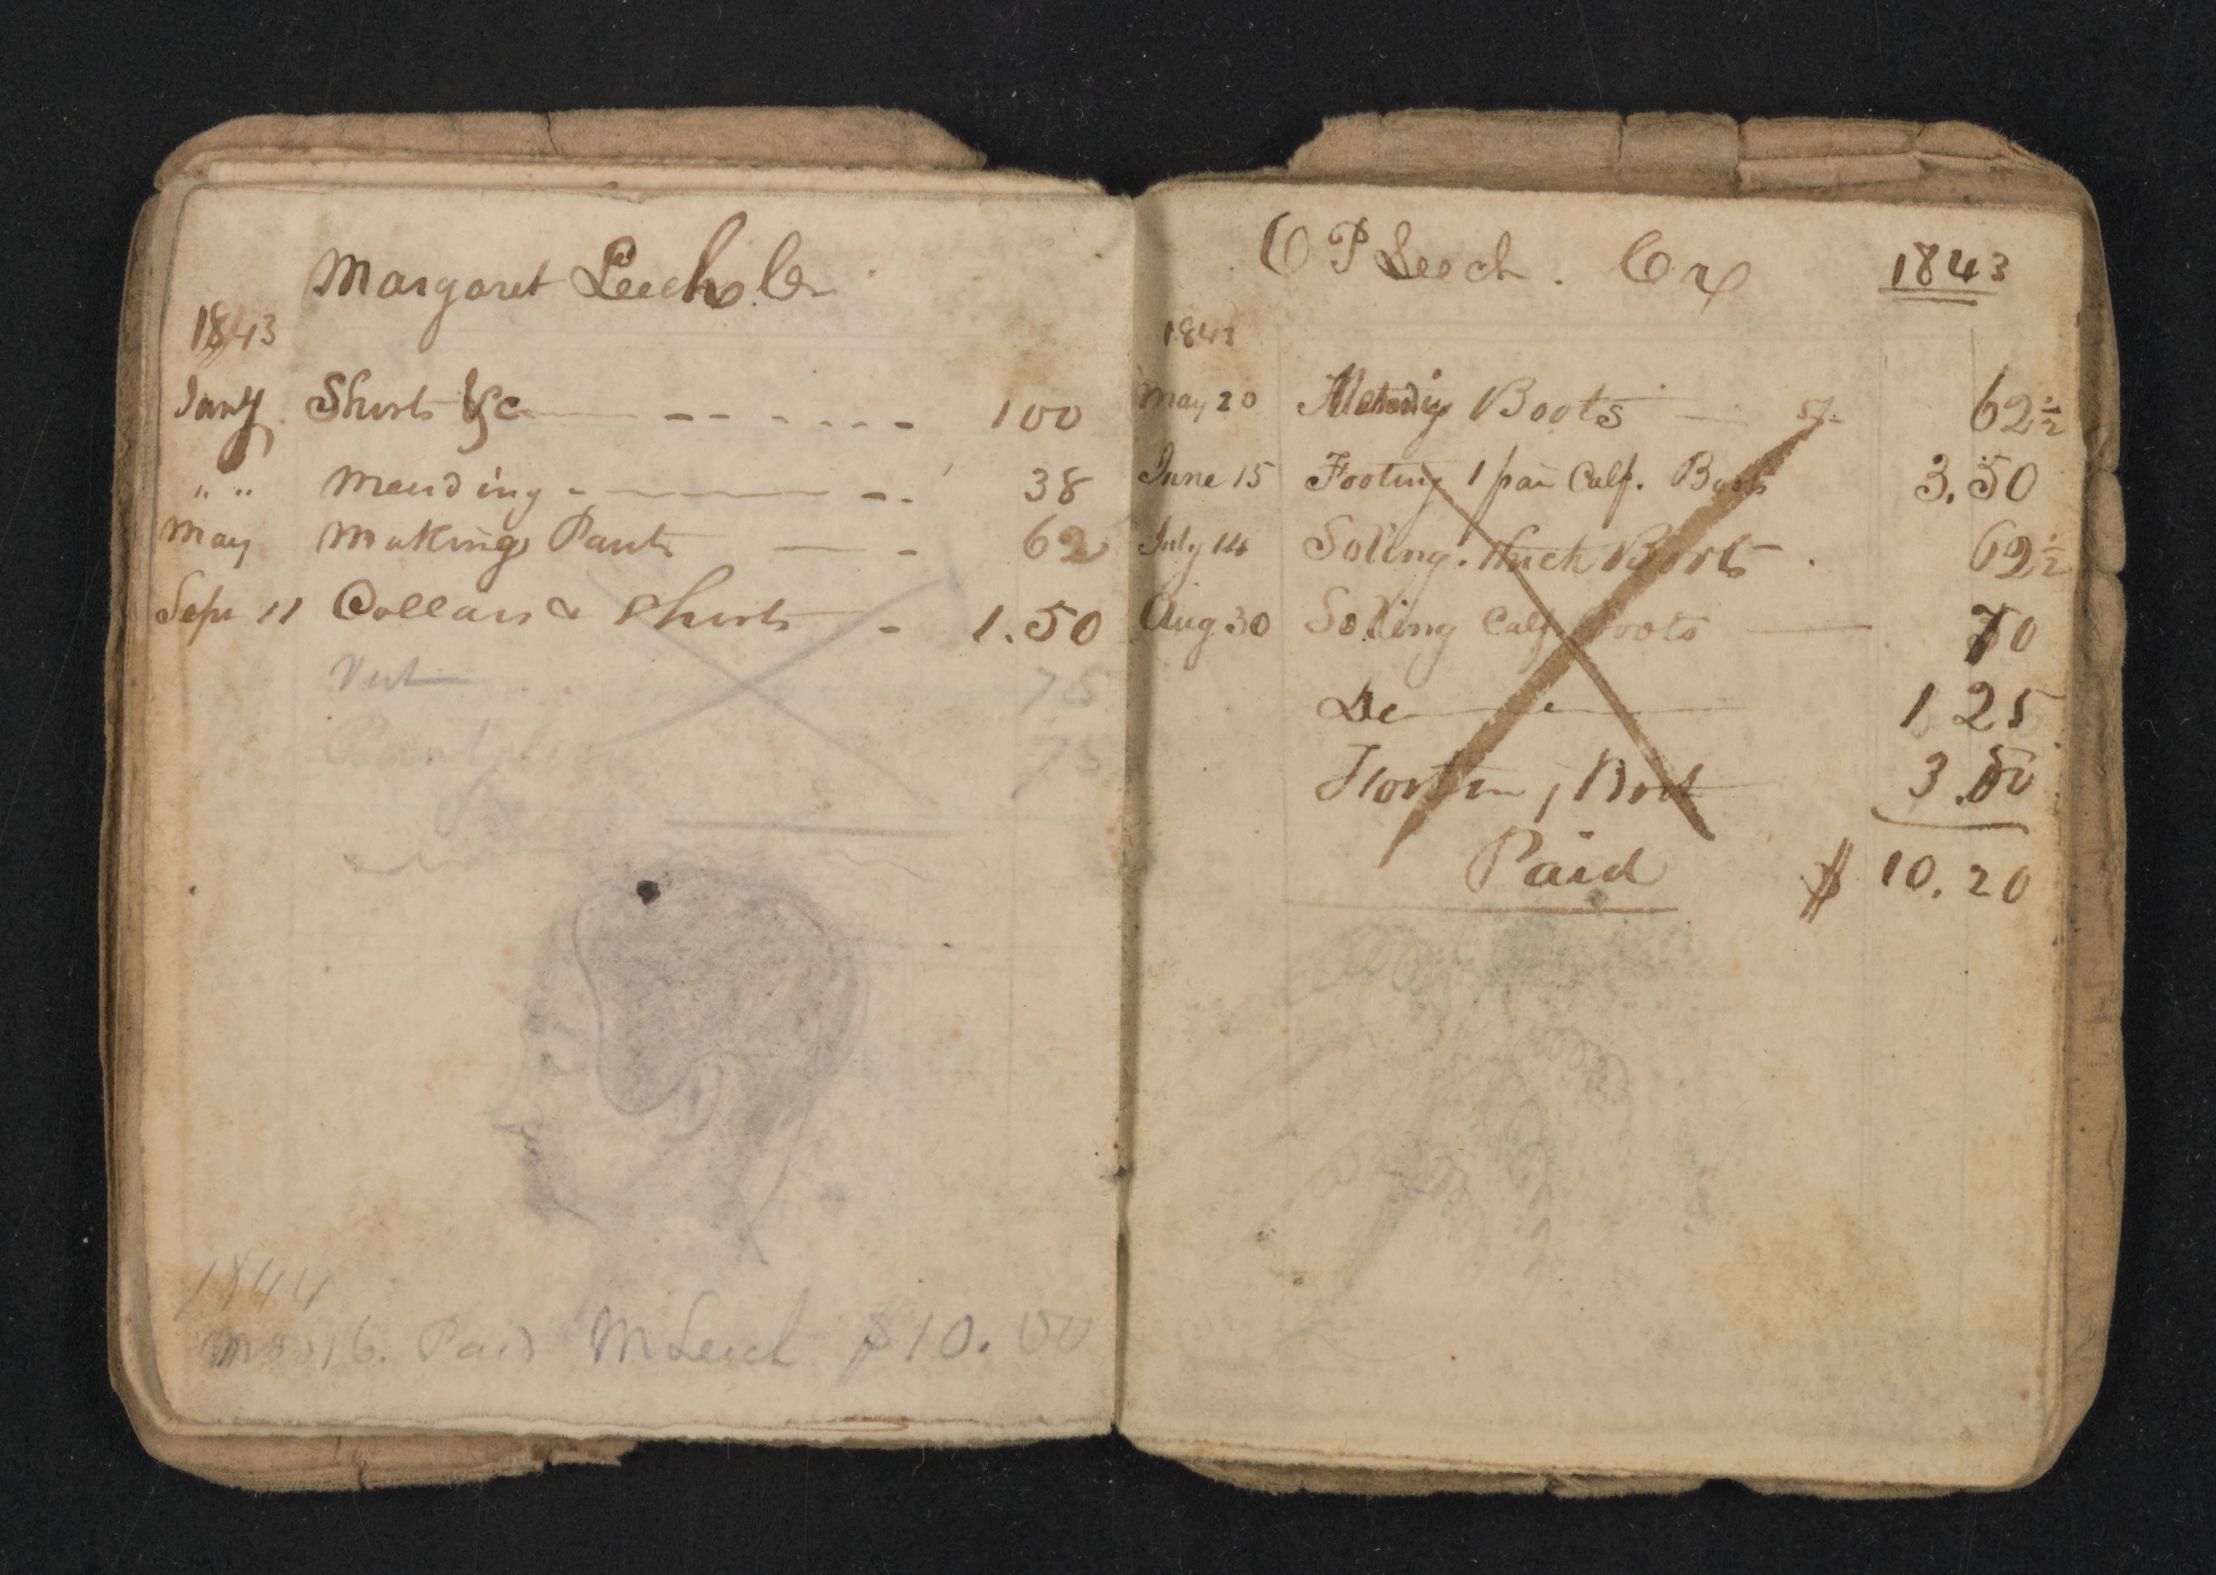 Margaret Leech Cr
1843
Jany Shirts &c 100
" " Mending 38
May Making Pants 62
Sept 11 Collars & Shirts 1.50
Vest 75
75
1844
16. Paid M Leech $10.00
C P Leech. Cr 1843
1843
May 20 Mending Boots 62 1/2
June 15 Footing 1 pair Calf. Boots 3.50
July 14 Soling. thick Boots 62 1/2
Aug 30 Soling Calf Boots 70
1 25
Boot 3.50
Paid $ 10.20